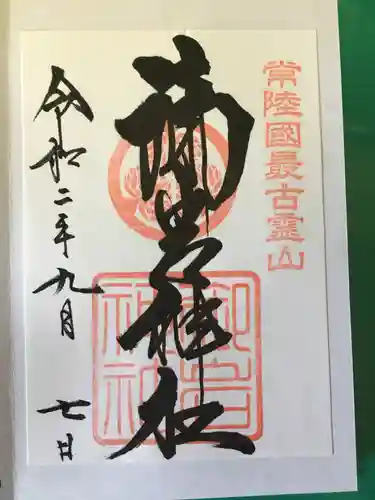 常陸國最古霊山
御岩神社
令和二年九月七日